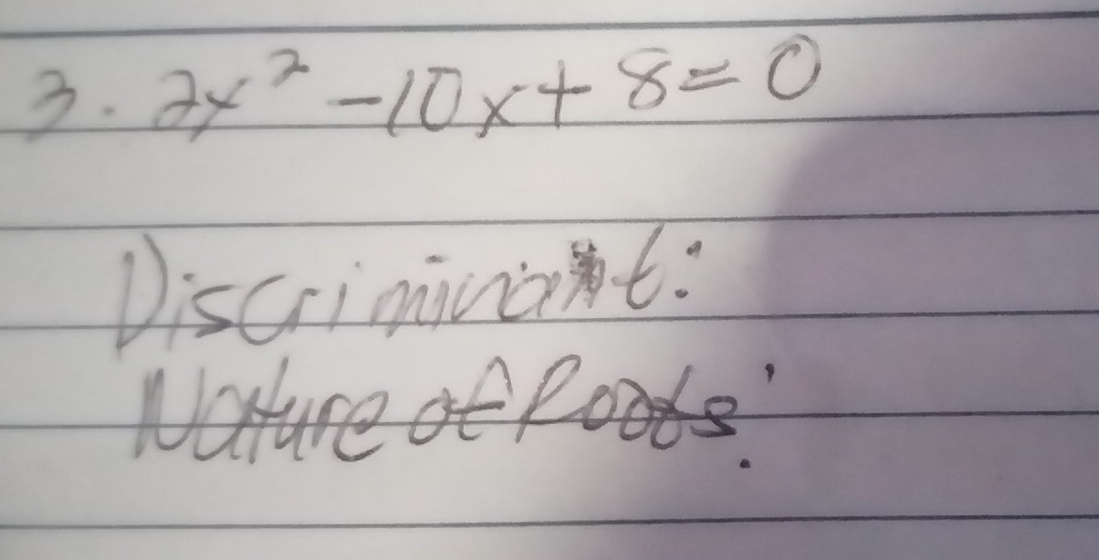 3. 2x² -10x + 8 = 0
Discriminant:
Nature of Roots: